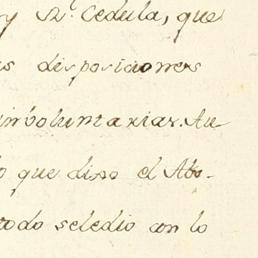 y Rl. Cedula, que
disposiciones
involuntarias. Au
que dixo el Abo-
todo seledio con lo